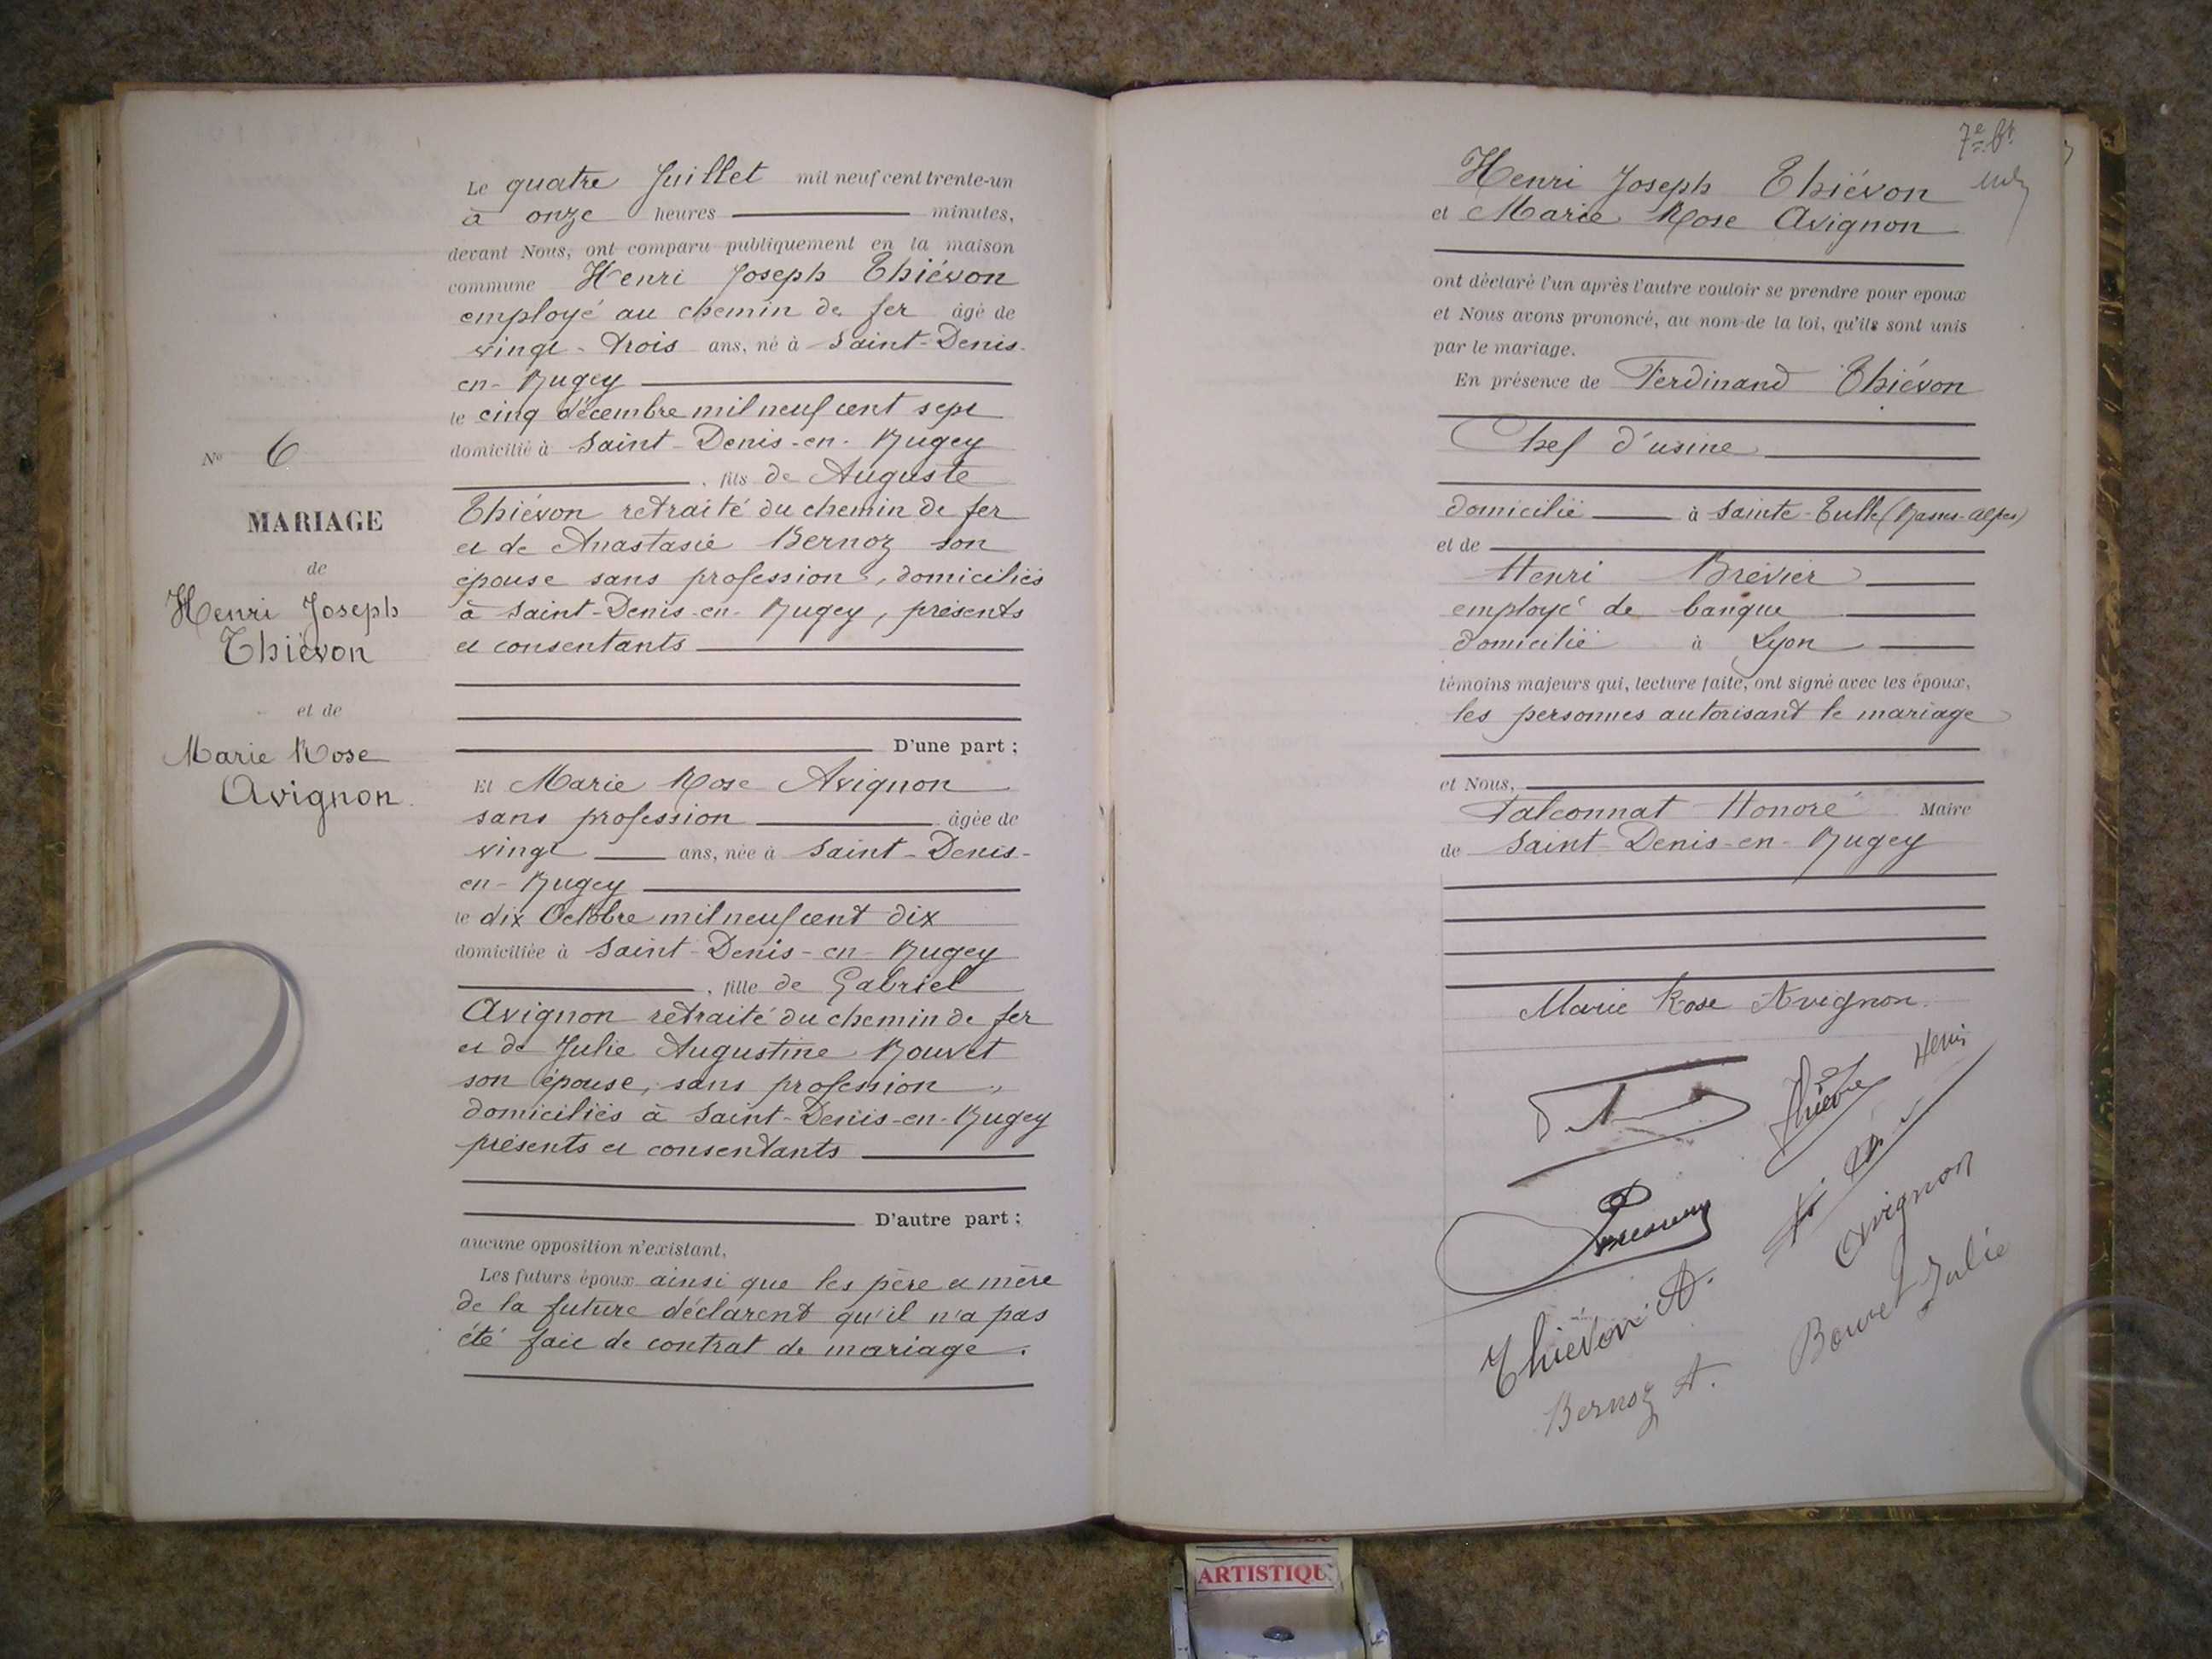 Nº 6
MARIAGE
de
Henri Joseph
Thiévon
et de
Marie Rose
Avignon
Le quatre Juillet mil neuf cent trente-un
à onze heures minutes,
devant Nous, ont comparu publiquement en la maison
commune Henri Joseph Thiévon
employé au chemin de fer âgé de
vingt-trois ans, né à Saint-Denis-
en-Bugey
le cinq décembre mil neuf cent sept
domicilié à Saint-Denis-en-Bugey
, fils de Auguste
Thiévon retraité du chemin de fer
et de Anastasie Bernoz son
épouse sans profession, domiciliés
à Saint-Denis-en-Bugey, présents
et consentants
D'une part ;
Et Marie Rose Avignon
sans profession âgée de
vingt ans, née à Saint-Denis-
en-Bugey
le dix Octobre mil neuf cent dix
domiciliée à Saint-Denis-en-Bugey
, fille de Gabriel
Avignon retraité du chemin de fer
et de Julie Augustine Bouvet
son épouse, sans profession,
domiciliés à Saint-Denis-en-Bugey
présents et consentants
D'autre part ;
aucune opposition n'existant,
Les futurs époux ainsi que les père et mère
de la future déclarent qu'il n'a pas
été fait de contrat de mariage.
Henri Joseph Thiévon
et Marie Rose Avignon
ont déclaré l'un après l'autre vouloir se prendre pour epoux
et Nous avons prononcé, au nom de la loi, qu'ils sont unis
par le mariage.
En présence de Ferdinand Thiévon
Chef d'usine
domicilié à Sainte-Tulle (Basses-Alpes)
et de
Henri Brévier
employé de banque
domicilié à Lyon
témoins majeurs qui, lecture faite, ont signé avec les époux,
les personnes autorisant le mariage
et Nous,
Falconnat Honoré Maire
de Saint-Denis-en-Bugey
Marie Rose Avignon
Henri
Avignon
Thiévon A.
Bouvet Julie
Bernoz A.
ARTISTIQU